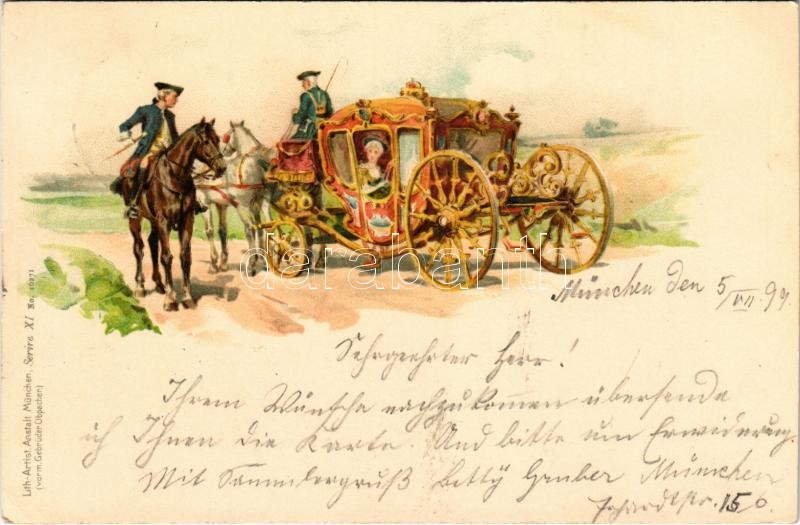 darabanth
München den 5/VII. 97.
Sehrgeehrter Herr!
Ihrem Wunsche nachzukommen übersende
ich Ihnen die Karte. Und bitte um Erwiderung.
Mit Sammlergruß Betty Gruber München
15
Lith.-Artist. Anstalt München, Serie XI No. 16071
(vorm. Gebrüder Obpacher)